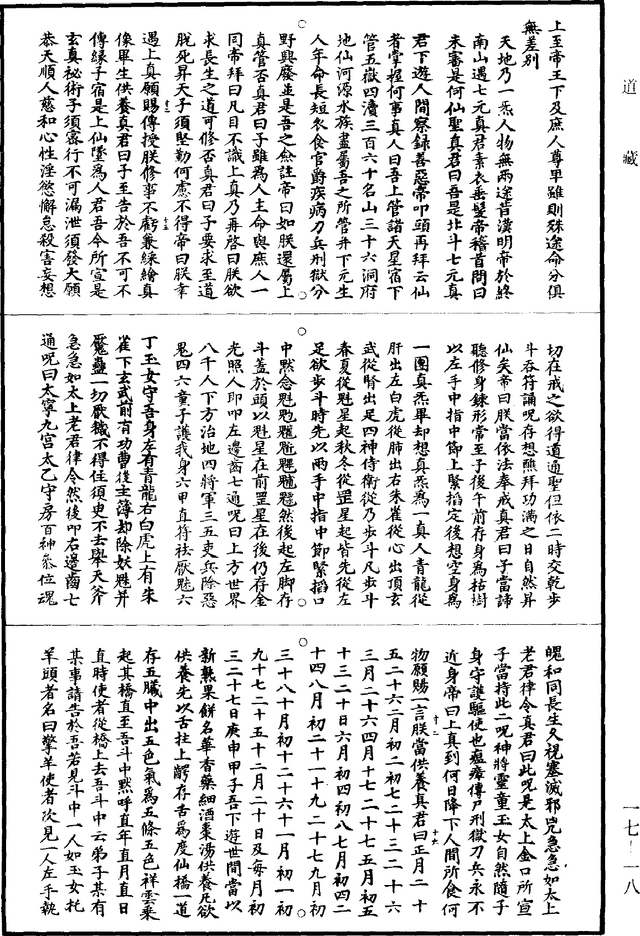 道藏
上至帝王下及庶人尊卑雖則殊途命分俱
無差別
天地乃一炁人物無兩途昔漢明帝於終
南山遇七元真君素衣垂髮帝稽首問曰
未審是何仙聖真君曰吾是北斗七元真
君下遊人間察録善惡帝叩頭再拜云仙
者掌握何事真人曰吾上管諸天星宿下
管五嶽四瀆三百六十名山三十六洞府
地仙河源水族盡屬吾之所管并下元生
人年命長短衣食官爵疾病刀兵刑獄分
野興廢並是吾之僉註帝曰如朕還屬上
真管否真君曰子雖為人主命與庶人一
同帝拜曰凡目不識上真乃再啓曰朕欲
求長生之道可修否真君曰子要求至道
脫死昇天子須堅勤何慮不得帝曰朕幸
遇上真願賜傳授朕修事不虧兼綵繪真
像畢生供養真君曰子至告於吾不可不
傳緣子宿是上仙墜為人君吾今所宣是
玄真祕術子須密行不可漏泄須發大願
恭天順人慈和心性淫慾懈怠殺害妄想
切在戒之欲得道通聖但依二時交乾步
斗吞符誦呪存想醮拜功滿之日自然昇
仙矣帝曰朕當依法奉戒真君曰子當諦
聽修身錬形常至子後午前存身為枯樹
以左手中指中節上緊掐定後想空身為
一團真炁畢却想真炁為一真人青龍從
肝出左白虎從肺出右朱雀從心出頂玄
武從腎出足四神侍衛從乃步斗凡步斗
春夏從魁星起秋冬從罡星起皆先從左
足欲步斗時先以兩手中指中節緊掐口
中黙念魁𩲃䰢魓魒然後起左脚存
斗蓋於頭以魁星在前罡星在後仍存金
光照人即叩左邊齒七遍呪曰上方世界
八千人下方治地四將軍三五吏兵除惡
鬼四六童子護我身六甲直符祛厭魅六
丁玉女守吾身左有青龍右白虎上有朱
雀下玄武前有功曹後主簿却除妖魅并
魘蠱一切厭穢不得住須吏不去舉天斧
急急如太上老君律令然後叩右邊齒七
通呪曰太寧九宮太乙守房百神參位魂
魄和同長生久視塞滅邪兇急急如太上
老君律令真君曰此呪是太上金口所宣
子當持此二呪神將靈童玉女自然隨子
身守護驅使也瘟瘴傳尸刑獄刀兵永不
近身帝曰上真到何日降下人間所食何
物願賜一言朕當供養真君曰正月二十
五二十六二月初二初七二十三二十六
三月二十六四月十七二十七五月初五
十三二十日六月初四初八七月初四二
十四八月初二十一十九二十七九月初
三十八十月初十二十六十一月初一初
九十七二十五十二月二十日及每月初
三二十七日庚申甲子吾下遊世間當以
新熟果餅名華香藥細酒棗湯供養凡欲
供養先以舌拄上齶存舌為度仙橋一道
存五臟中出五色氣為五條五色祥雲乗
起其橋直至吾斗中黙呼直年直月直日
直時使者從橋上去吾斗中云弟子某有
某事請告於吾若見斗中一人如玉女托
羊頭者名曰擎羊使者次見一人左手執
一七—一八